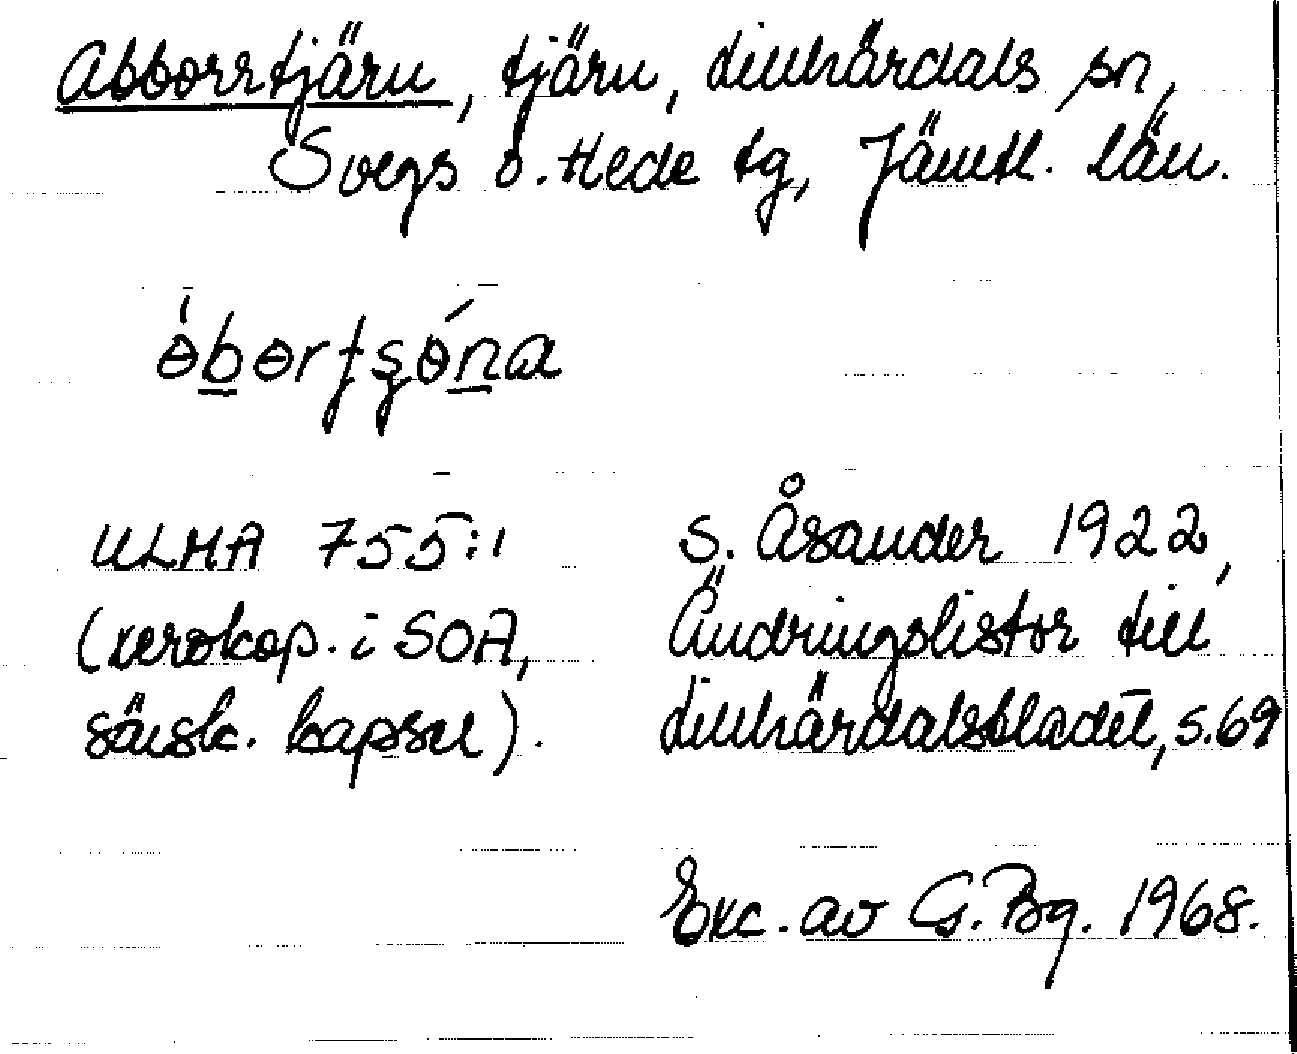 Abborrtjärn, tjärn, Lillhärdals sn,
Svegs o. Hede tg, Jämtl. län.
ULMA 755:1
(xerokop. i SOA,
särsk. kapsel).
S. Åsander 1922,
Ändringslistor till
Lillhärdalsbladet, s. 69
Exc. av G. Bg. 1968.